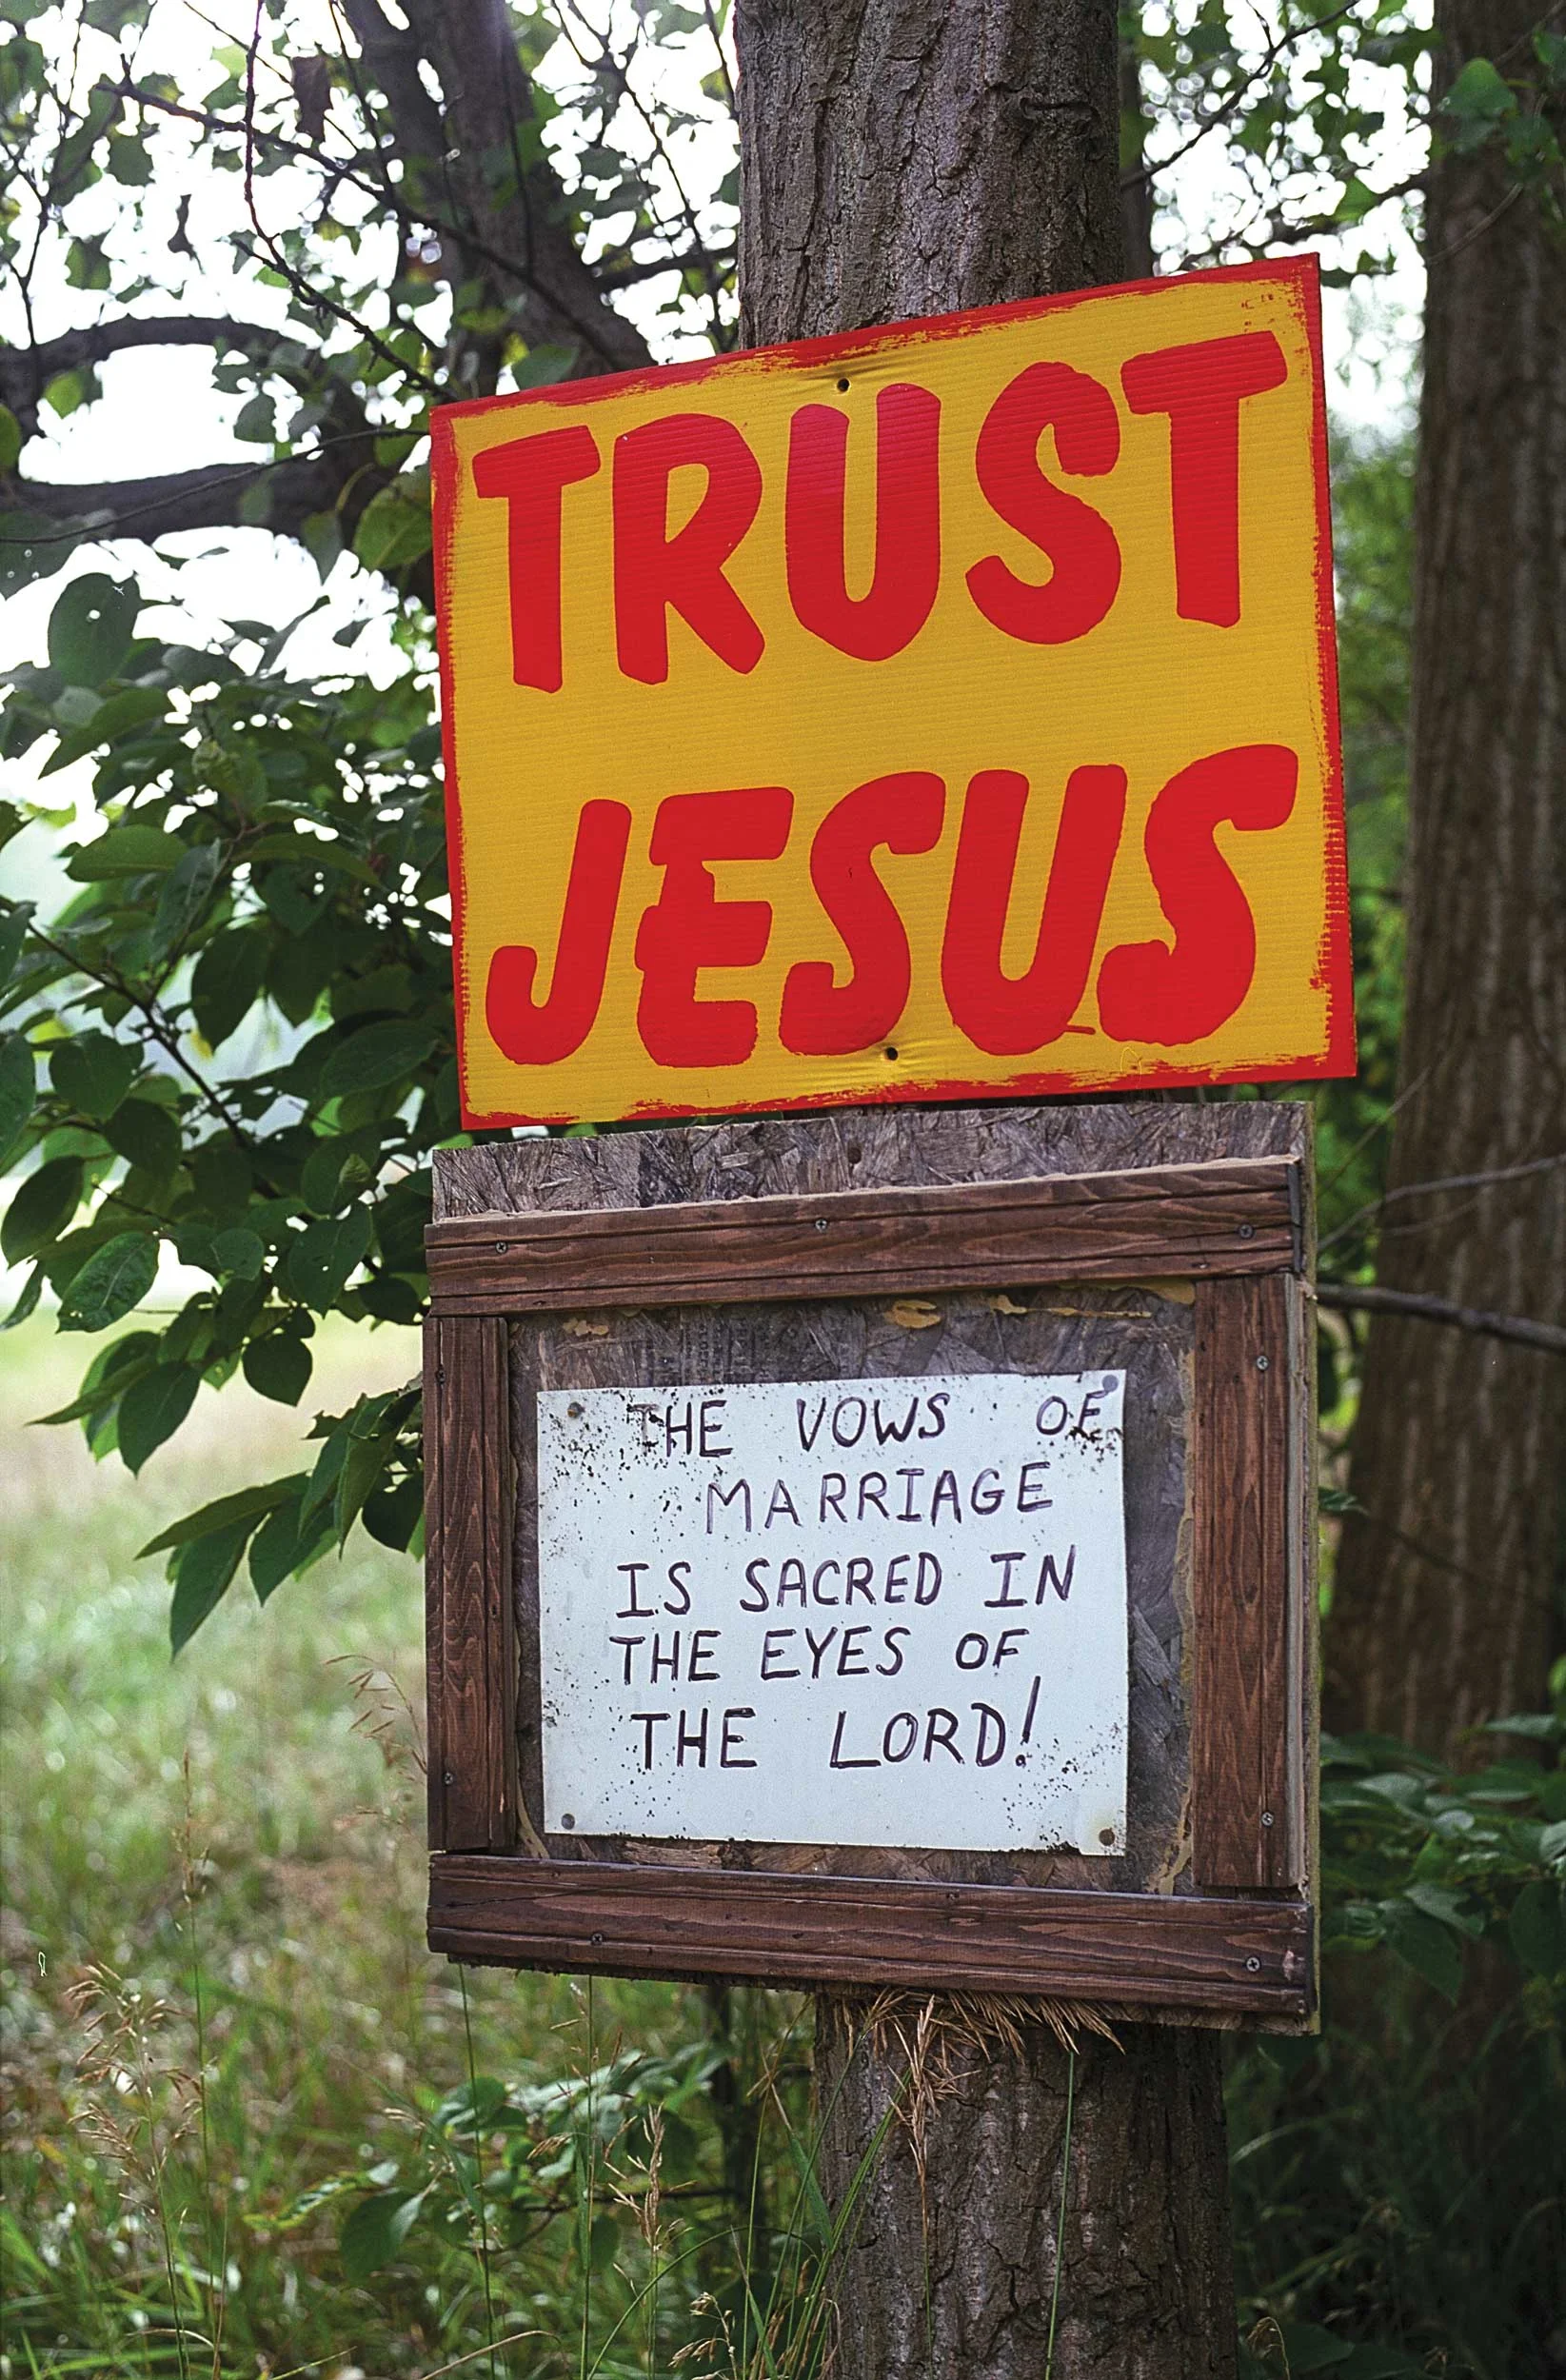 TRUST
JESUS
THE VOWS OF
MARRIAGE
IS SACRED IN
THE EYES OF
THE LORD!